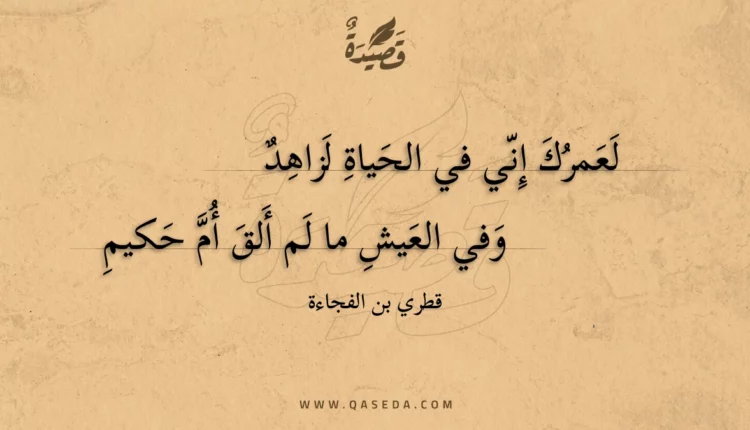 قَصِيْدَةٌ
لَعَمرُكَ إِنّي في الحَياةِ لَزاهِدٌ
وَفي العَيشِ ما لَم أَلقَ أُمَّ حَكيمِ
قطري بن الفجاءة
WWW.QASEDA.COM